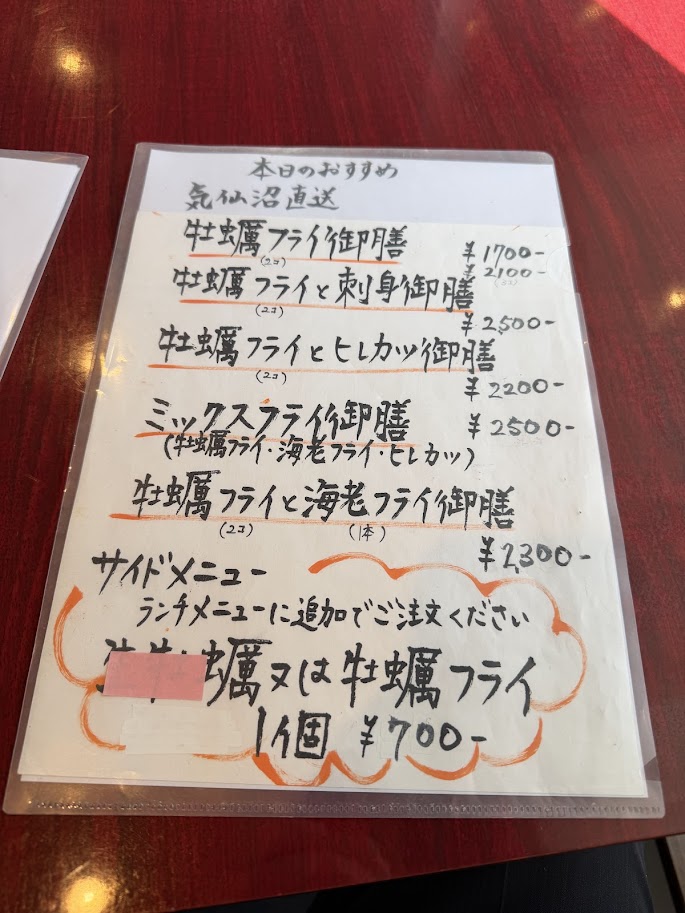 本日のおすすめ
気仙沼直送
牡蠣フライ御膳 ¥1700-
(2コ) ¥2100-
牡蠣フライと刺身御膳
(2コ) ¥2,500-
牡蠣フライとヒレカツ御膳
(2コ) ¥2200-
ミックスフライ御膳 ¥2500-
(牡蠣フライ・海老フライ・ヒレカツ)
牡蠣フライと海老フライ御膳
(2コ) (1本)
¥2,300-
サイドメニュー
ランチメニューに追加でご注文ください
蠣又は牡蠣フライ
1個 ¥700-